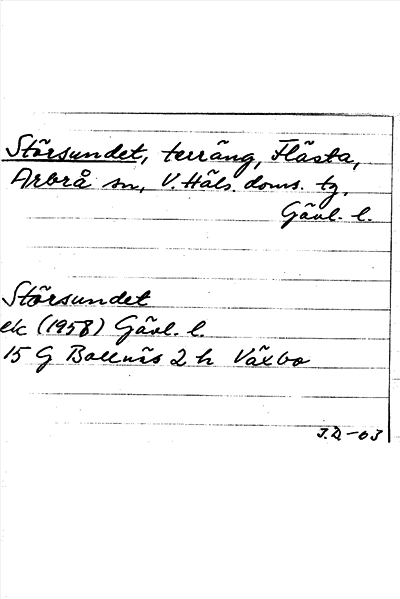 Störsundet, terräng, Flästa,
Arbrå sn, V. Häls. doms. tg,
Gävl. l.
Störsundet
ek (1958) Gävl. l.
15 G Bollnäs 2 h Växbo
J.D.-03